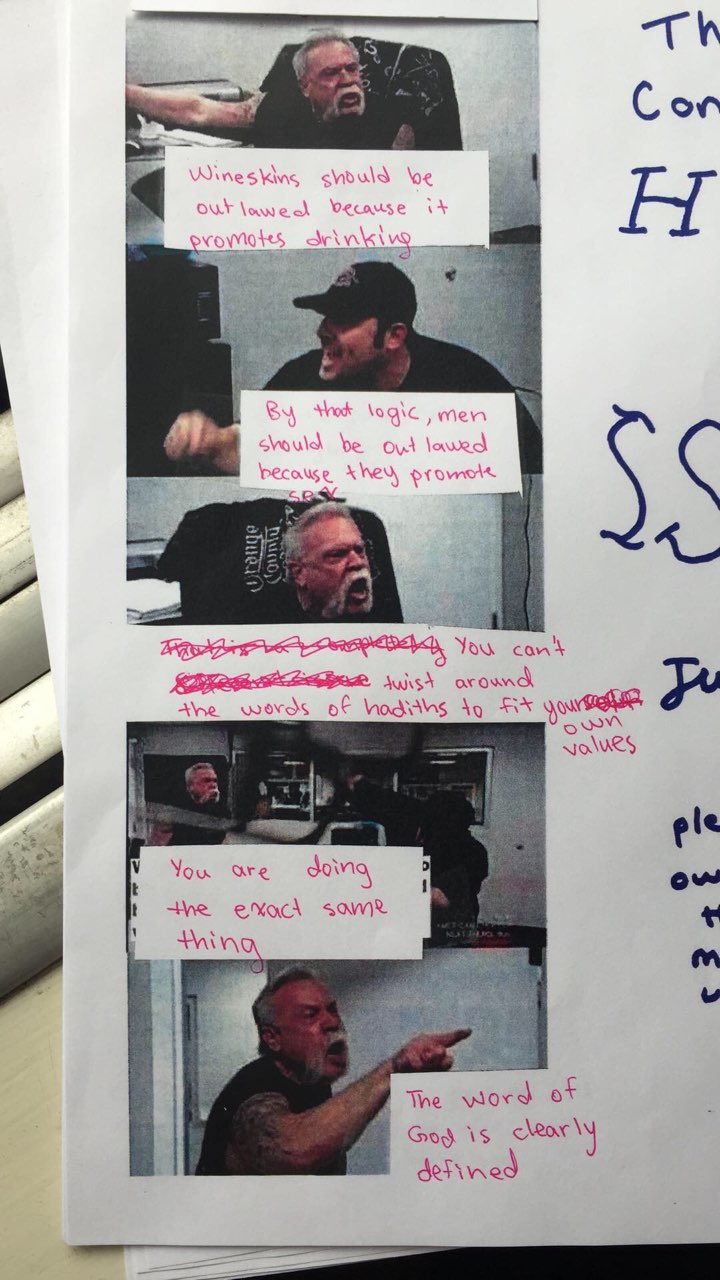 Wineskins should be
outlawed because it
promotes drinking
By that logic, men
should be outlawed
because they promote
sex
Orange
County
You can't
twist around
the words of hadiths to fit your
own
values
You are doing
the exact same
thing
The word of
God is clearly
defined
Th
Con
H
SS
Ju
ple
ow
m